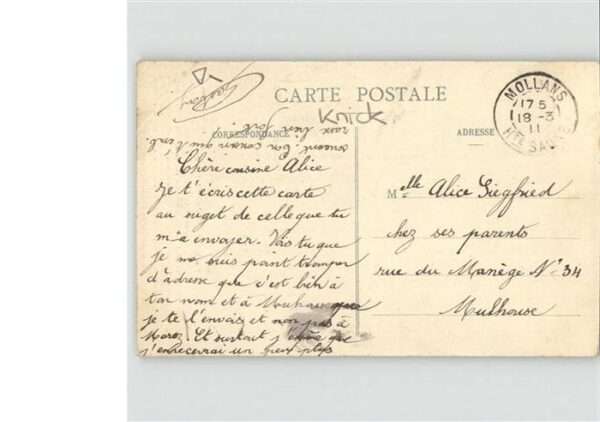 CARTE POSTALE
Knick
CORRESPONDANCE
ADRESSE
MOLLANS
17 5
18 - 3
11
Hte SAÔNE
Chèri cousine Alice
Je t'écris cette carte
au suget de celle que tu
m'a envoyer. Vois tu que
je me suis point tromper
d'adresse que c'est bien à
ton nom et à Mouhouse
je te l'envois et non pas à
Et surtout j'espère que
j'en recevrai un peu plus
Melle Alice Siegfried
chez ses parents
rue du Manège No 34
Mulhouse